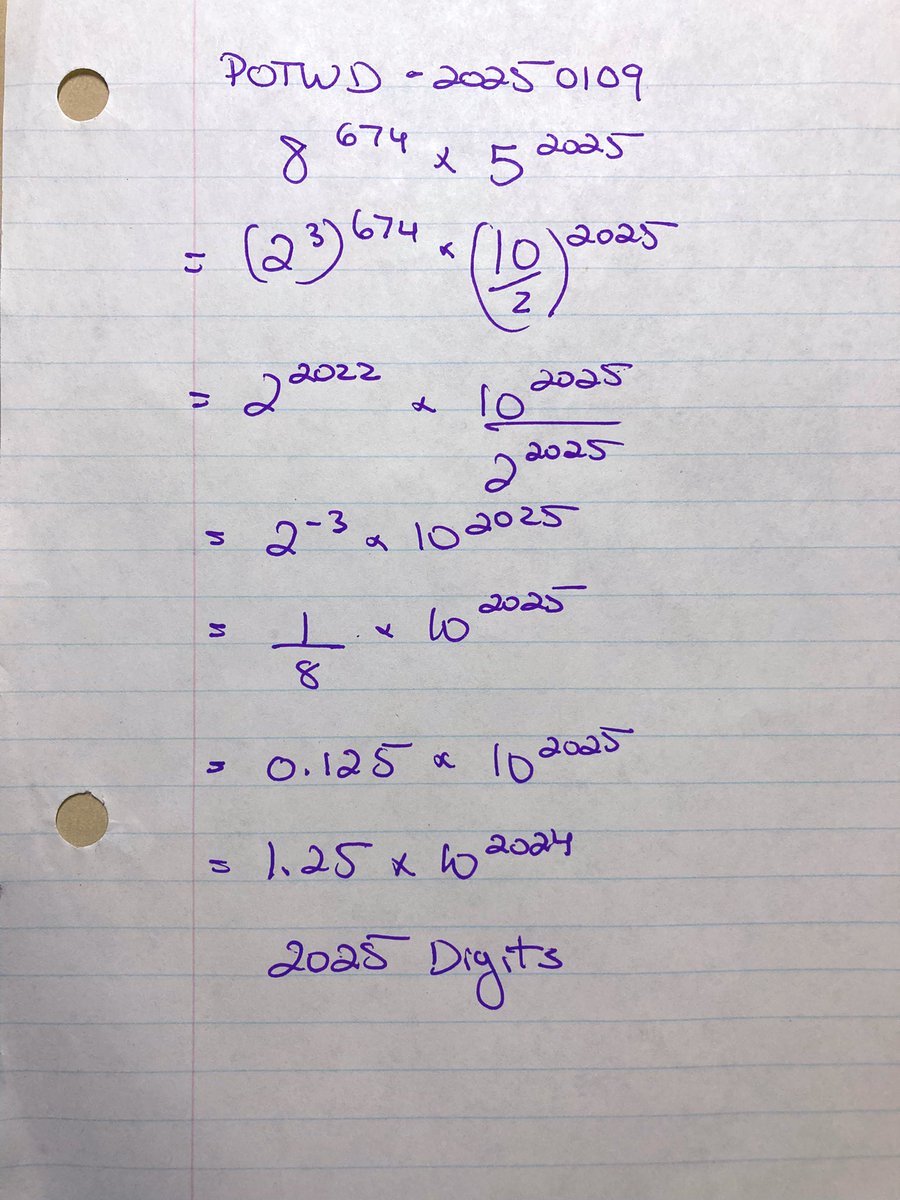 POTWD - 20250109
8^674 × 5^2025
= (2^3)^674 × (10/2)^2025
= 2^2022 × 10^2025/2^2025
= 2^-3 × 10^2025
= 1/8 × 10^2025
= 0.125 × 10^2025
= 1.25 × 10^2024
2025 Digits